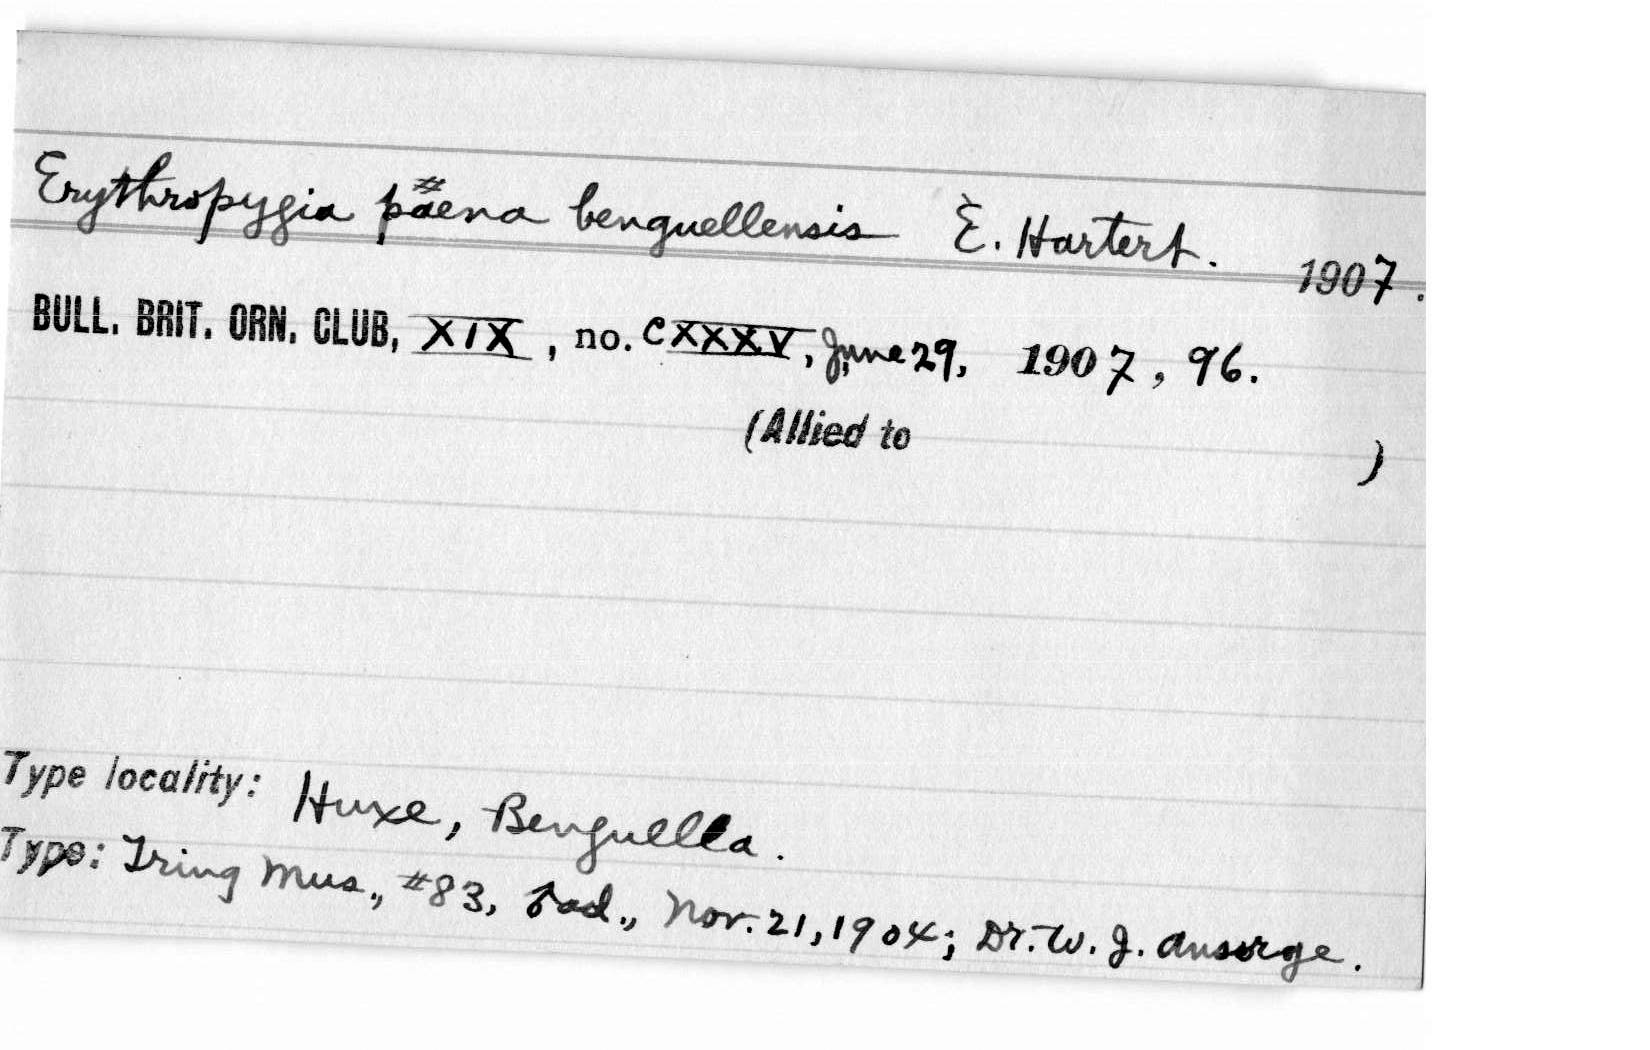 Erythropygia paena benguellensis E. Hartert. 1907.
BULL. BRIT. ORN. CLUB, XIX, no. CXXXV, June 29, 1907, 96.
(Allied to )
Type locality: Huxe, Benguella.
Type: Tring Mus., #83, ♂ ad., Nov. 21, 1904; Dr. W. J. Ansorge.